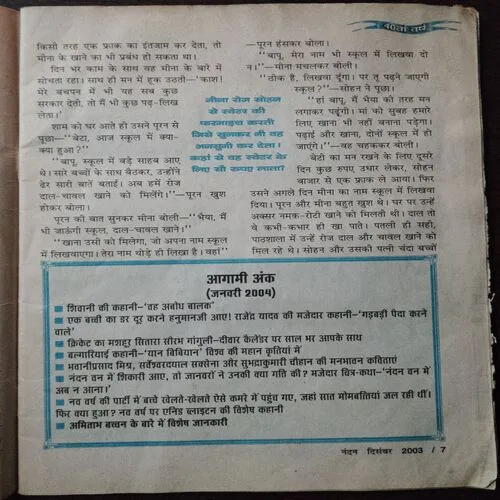 40वां वर्ष
किसी तरह एक फ्राक का इंतजाम कर देता, तो
मीना के खाने का भी प्रबंध हो सकता था।
दिन भर काम के साथ वह मीना के बारे में
सोचता रहा। साथ ही मन में हूक उठती—'काश!
मेरे बचपन में भी यह सब कुछ
सरकार देती, तो मैं भी कुछ पढ़-लिख
लेता।'
शाम को घर आते ही उसने पूरन से
पूछा—''बेटा, आज स्कूल में क्या-
क्या हुआ?''
''बापू, स्कूल में बड़े साहब आए
थे। सारे बच्चों के साथ बैठकर, उन्होंने
ढेर सारी बातें बताईं। अब हमें रोज
दाल-चावल खाने को मिलेंगे।''—पूरन खुश
होकर बोला।
पूरन की बात सुनकर मीना बोली—''भैया, मैं
भी जाऊंगी स्कूल, दाल-चावल खाने।''
''खाना उसी को मिलेगा, जो अपना नाम स्कूल
में लिखवाएगा। तेरा नाम थोड़े ही लिखा है। वहां''
मीना रोज सोहन
से स्वेटर की
फरमाइश करती
जिसे सुनकर भी वह
अनसुनी कर देता।
कहां से वह स्वेटर के
लिए सौ रुपए लाता?
—पूरन हंसकर बोला।
''बापू, मेरा नाम भी स्कूल में लिखवा दो
न।''—मीना मचलकर बोली।
''ठीक है, लिखवा दूंगा। पर तू पढ़ने जाएगी
स्कूल?''—सोहन ने पूछा।
''हां बापू, मैं भैया की तरह मन
लगाकर पढ़ूंगी। मां को सुबह हमारे
लिए खाना भी नहीं बनाना पड़ेगा।
पढ़ाई और खाना, दोनों स्कूल में हो
जाएंगे।''—वह चहककर बोली।
बेटी का मन रखने के लिए दूसरे
दिन कुछ रुपए उधार लेकर, सोहन
बाजार से एक फ्राक ले आया। फिर
उसने अगले दिन मीना का नाम स्कूल में लिखवा
दिया। पूरन और मीना बहुत खुश थे। घर पर उन्हें
अक्सर नमक-रोटी खाने को मिलती थी। दाल तो
वे कभी-कभार ही खा पाते। पतली ही सही,
पाठशाला में उन्हें रोज दाल और चावल खाने को
मिल रहे थे। सोहन और उसकी पत्नी चंदा बच्चों
आगामी अंक
(जनवरी 2004)
■ शिवानी की कहानी—'वह अबोध बालक'
■ एक बच्ची का डर दूर करने हनुमानजी आए! राजेंद्र यादव की मजेदार कहानी—'गड़बड़ी पैदा करने
वाले'
■ क्रिकेट का मशहूर सितारा सौरभ गांगुली—दीवार कैलेंडर पर साल भर आपके साथ
■ बल्गारियाई कहानी—'यान बिबियान' विश्व की महान कृतियां में
■ भवानीप्रसाद मिश्र, सर्वेश्वरदयाल सक्सेना और सुभद्राकुमारी चौहान की मनभावन कविताएं
■ नंदन वन में शिकारी आए, तो जानवरों ने उनकी क्या गति की? मजेदार चित्र-कथा—'नंदन वन में
अब न आना।'
■ नव वर्ष की पार्टी में बच्चे खेलते-खेलते ऐसे कमरे में पहुंच गए, जहां सात मोमबत्तियां जल रही थीं।
फिर क्या हुआ? नव वर्ष पर एनिड ब्लाइटन की विशेष कहानी
■ अमिताभ बच्चन के बारे में विशेष जानकारी
नंदन दिसंबर 2003 / 7